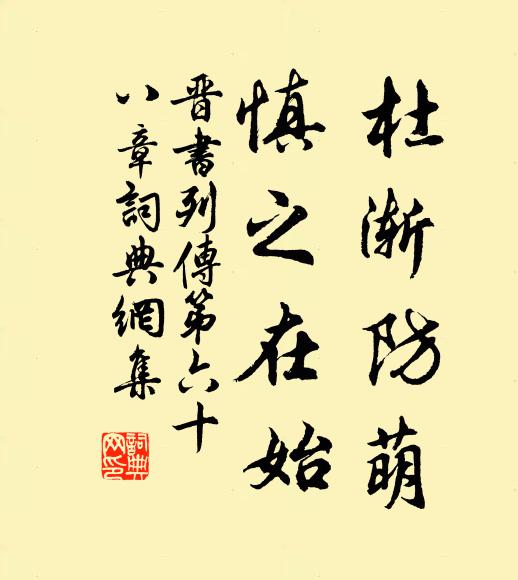 杜渐防萌
慎之在始
晋書列傳第六十
八章詞典網集
詞典網印